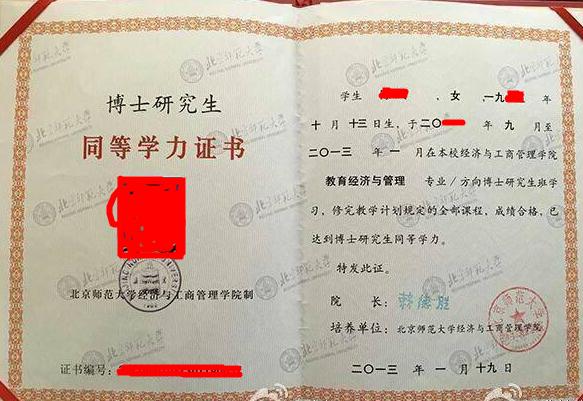 博士研究生
同等学力证书
北京师范大学经济与工商管理学院制
证书编号:
学生 、女、一九 年
十月十三日生,于二〇 年九月至
二〇一三年一月在本校经济与工商管理学院
教育经济与管理 专业/方向博士研究生班学
习,修完教学计划规定的全部课程,成绩合格,已
达到博士研究生同等学力。
特发此证。
院 长:
培养单位:北京师范大学经济与工商管理学院
二〇一三年一月十九日
北京师范大学